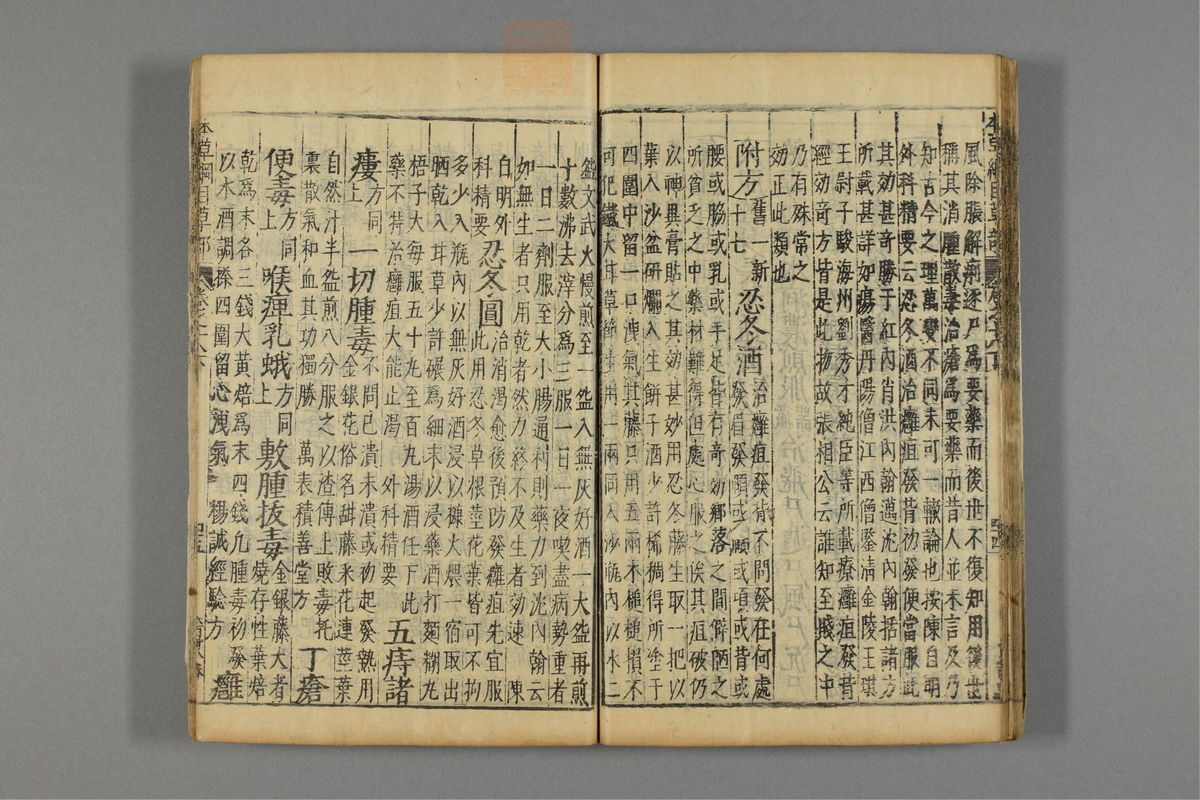 本草綱目草部
風除脹解痢逐尸爲要藥而後世不復知用後世
稱其消腫散毒治瘡爲要藥而昔人並未言及乃
知古今之理萬變不同未可一轍論也按陳自明
外科精要云忍冬酒治癰疽發背初發便當服此
其効甚奇勝于紅內消洪內翰邁沈內翰括諸方
所載甚詳如瘍醫丹陽僧江西僧鑒清金陵王琪
王尉子駿海州劉秀才純臣等所載療癰疽發背
經効奇方皆是此物故張相公云誰知至賤之中
乃有殊常之
効正此類也
附方舊一新十七 忍冬酒治癰疽發背不問發在何處
發眉發頤或項或背或
腰或脇或乳或手足皆有奇効鄉落之間僻陋之
所貧乏之中藥材難得但處心服之俟其疽破仍
以神異膏貼之其効甚妙用忍冬藤生取一把以
葉入沙盆研爛入生餅子酒少許稀稠得所塗于
四圍中留一口洩氣其藤只用五兩木槌槌損不
可犯鐵大甘草節生用一兩同入沙瓶內以水二
盌文武火慢煎至一盌入無灰好酒一大盌再煎
十數沸去滓分爲三服一日一夜喫盡病勢重者
一日二劑服至大小腸通利則藥力到沈內翰云
如無生者只用乾者然力終不及生者効速 陳
自明外
科精要 忍冬圓治消渴愈後預防發癰疽先宜服
此用忍冬草根莖花葉皆可不拘
多少入瓶內以無灰好酒浸以糠火煨一宿取出
晒乾入甘草少許碾爲細末以浸藥酒打麵糊丸
梧子大每服五十丸至百丸湯酒任下此
藥不特治癰疽大能止渴 外科精要 五痔諸
瘻方同上 一切腫毒不問已潰未潰或初起發熱用
金銀花俗名甜藤采花連莖葉
自然汁半盌煎八分服之以渣傅上敗毒托
裏散氣和血其功獨勝 萬表積善堂方 丁瘡
便毒方同上 喉痺乳蛾方同上 敷腫拔毒金銀藤大者
燒存性葉焙
乾爲末各三錢大黃焙爲末四錢凡腫毒初發
以水酒調搽四圍留心洩氣 楊誠經驗方 癰
本草綱目草部